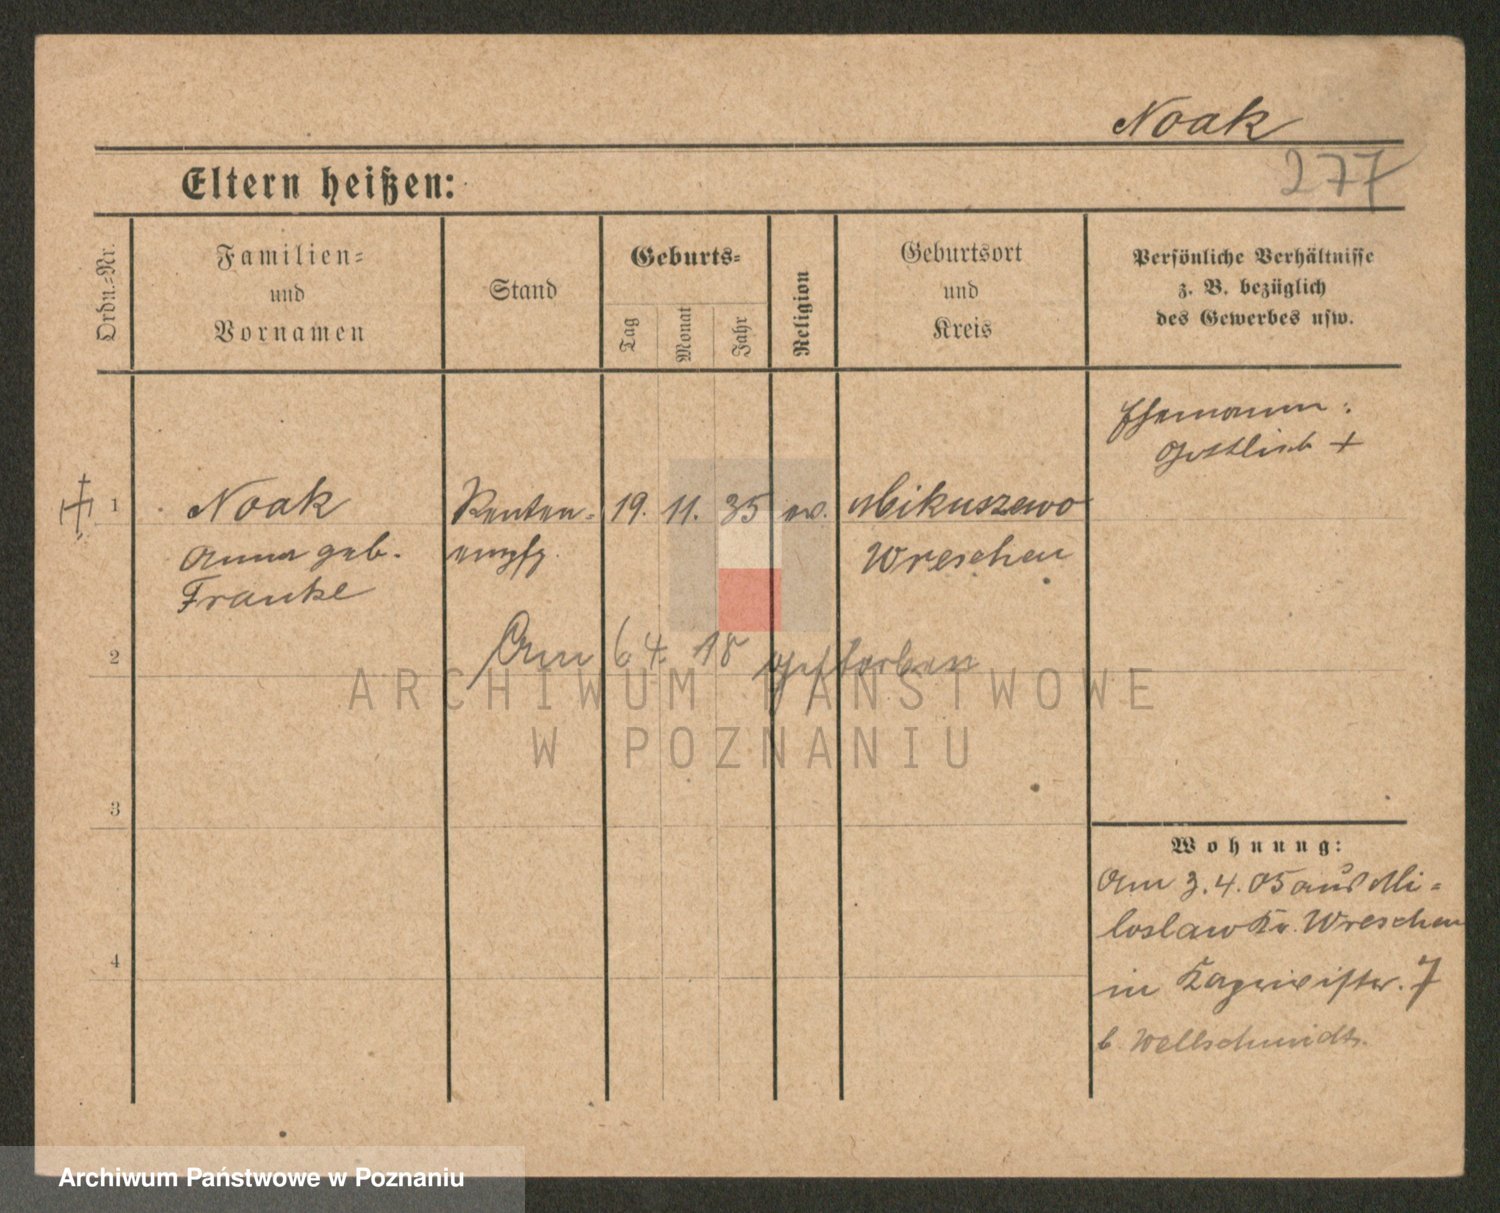 Noak
277
Eltern heißen:
Ordn.-Nr.
Familien-
und
Vornamen
Stand
Geburts-
Tag
Monat
Jahr
Religion
Geburtsort
und
Kreis
Persönliche Verhältnisse
z. B. bezüglich
des Gewerbes usw.
Ehemann:
Gottlieb +
1 Noak Renten- 19. 11. 35 ev. Mikuszewo
Anna geb. empfg. Wreschen
Franke
2 Am 6 4. 18 gestorben
ARCHIWUM PAŃSTWOWE
W POZNANIU
3
Wohnung:
Am 3.4.05 aus Mi-
loslaw Kr. Wreschen
4
in 7
b. Wellschmidt
Archiwum Państwowe w Poznaniu